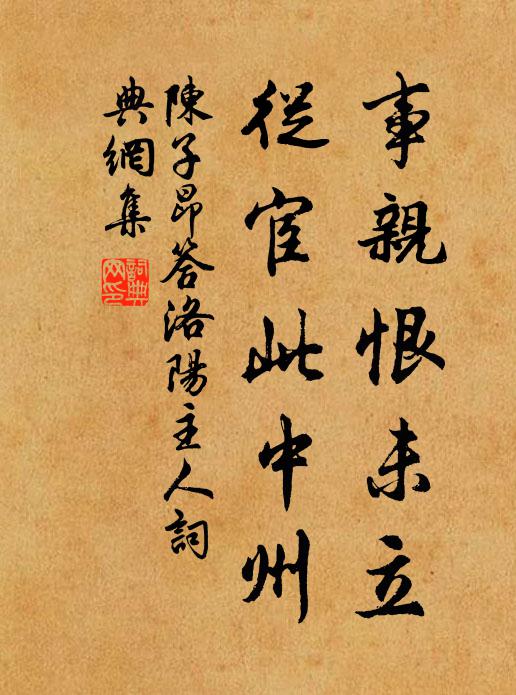 事親恨未立
從宦此中州
陳子昂答洛陽主人詞
典網集
詞典網印